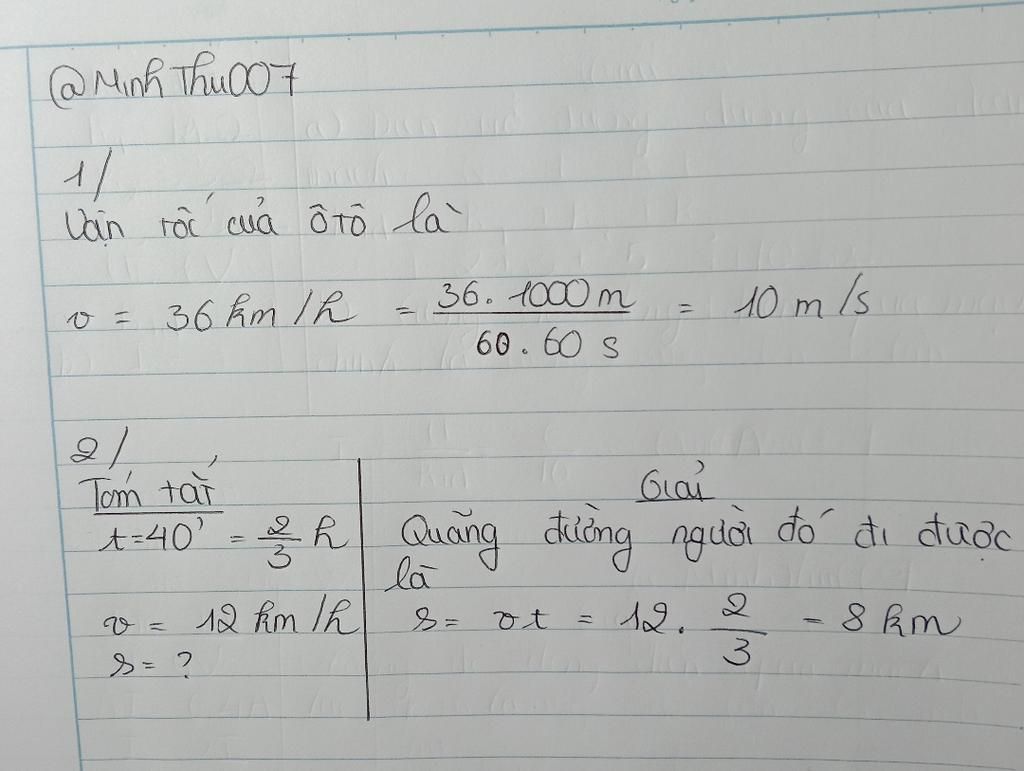 @MinhThu007
1/
Vận tốc của ôtô là
v = 36 km/h = \frac{36.1000 m}{60.60 s} = 10 m/s
2/
Tóm tắt
t=40' = \frac{2}{3} h
v = 12 km/h
s = ?
Giải
Quãng đường người đó đi được
là
s = vt = 12. \frac{2}{3} = 8 km